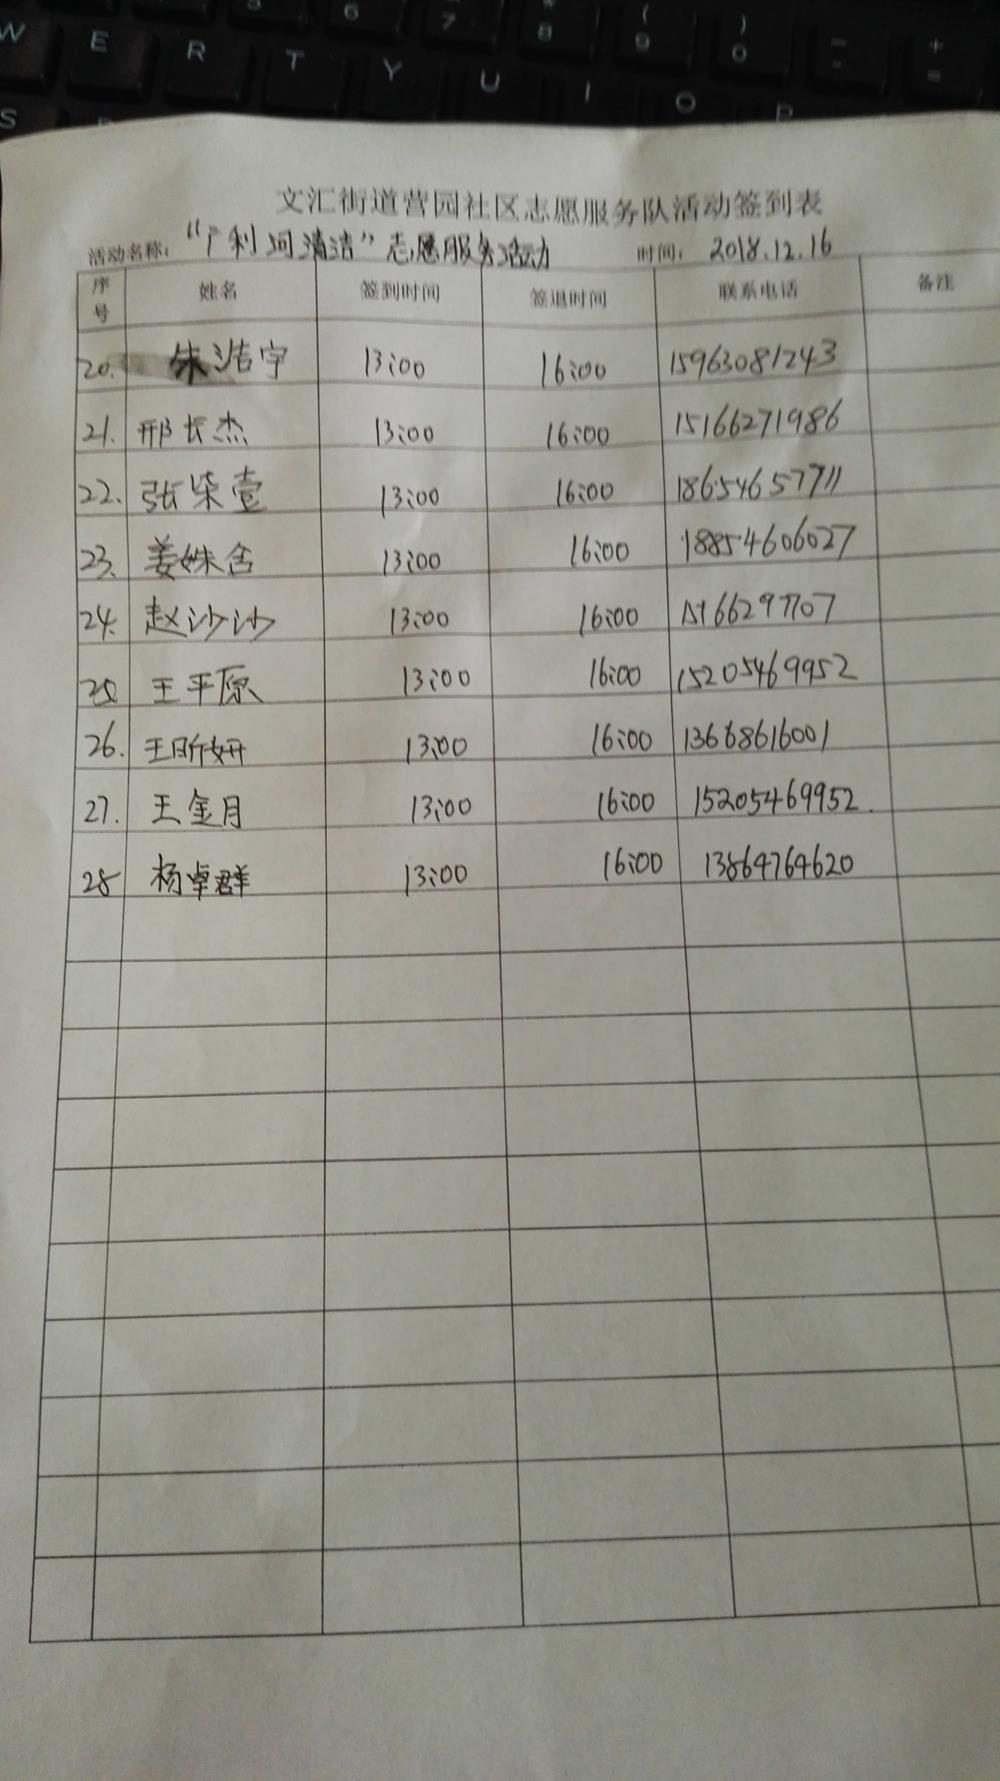 W E R T Y U I O P
文汇街道营园社区志愿服务队活动签到表
活动名称：“广利河清洁”志愿服务活动 时间：2018.12.16
序号 姓名 签到时间 签退时间 联系电话 备注
20. 朱洁宇 13:00 16:00 15963081243
21. 邢长杰 13:00 16:00 15166271986
22. 张柒壹 13:00 16:00 18654657711
23. 姜姝含 13:00 16:00 18854606027
24. 赵沙沙 13:00 16:00 15166297707
25 王平原 13:00 16:00 15205469952
26. 王昕妍 13:00 16:00 13668616001
27. 王金月 13:00 16:00 15205469952.
28 杨卓群 13:00 16:00 13864764620